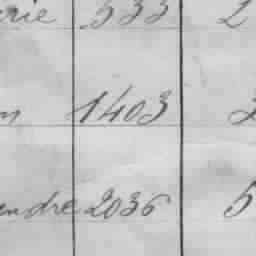 rie 533 2
n 1403 3
endre 2036 5